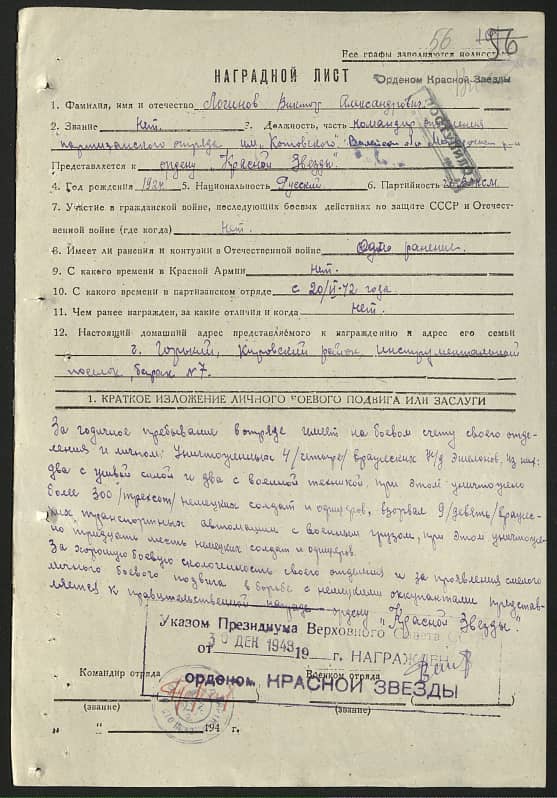 56
56
Все графы заполняются полностью
НАГРАДНОЙ ЛИСТ
Орденом Красной Звезды
1. Фамилия, имя и отчество Логинов Виктор Александрович.
2. Звание Нет. 3. Должность, часть командир отделения
партизанского отряда им. Котовского.
Представляется к ордену "Красной Звезды".
4. Год рождения 1924 5. Национальность Русский 6. Партийность
7. Участие в гражданской войне, последующих боевых действиях по защите СССР и Отечест-
венной войне (где когда) Нет.
8. Имеет ли ранения и контузии в Отечественной войне Одно ранение.
9. С какого времени в Красной Армии нет.
10. С какого времени в партизанском отряде с 20/ -42 года.
11. Чем ранее награжден, за какие отличия и когда нет.
12. Настоящий домашний адрес представляемого к награждению и адрес его семьи
г. Горький, Кировский район, Инструментальной
поселок, барак №7.
1. КРАТКОЕ ИЗЛОЖЕНИЕ ЛИЧНОГО БОЕВОГО ПОДВИГА ИЛИ ЗАСЛУГИ
За годичное пребывание в отряде имеет на боевом счету своего отде-
ления и личном: Уничтоженных 4/четыре/ вражеских ж/д эшелонов, из них:
два с живой силой и два с военной техникой, при этом уничтожено
более 300/трехсот/ немецких солдат и офицеров, взорвал 9/девять/ вражес-
ких транспортных автомашин с военным грузом, при этом уничтоже-
но тридцать шесть немецких солдат и офицеров.
За хорошую боевую сколоченность своего отделения и за проявления смелого
личного боевого подвига в борьбе с немецкими оккупантами представ-
ляется к правительственной награде ордену "Красной Звезды".
Указом Президиума Верховного Совета
от 30 ДЕК 1943 19 г. НАГРАЖДЕН
Командир отряда Военком отряда
орденом КРАСНОЙ ЗВЕЗДЫ
(звание) (звание)
" " 194 г.